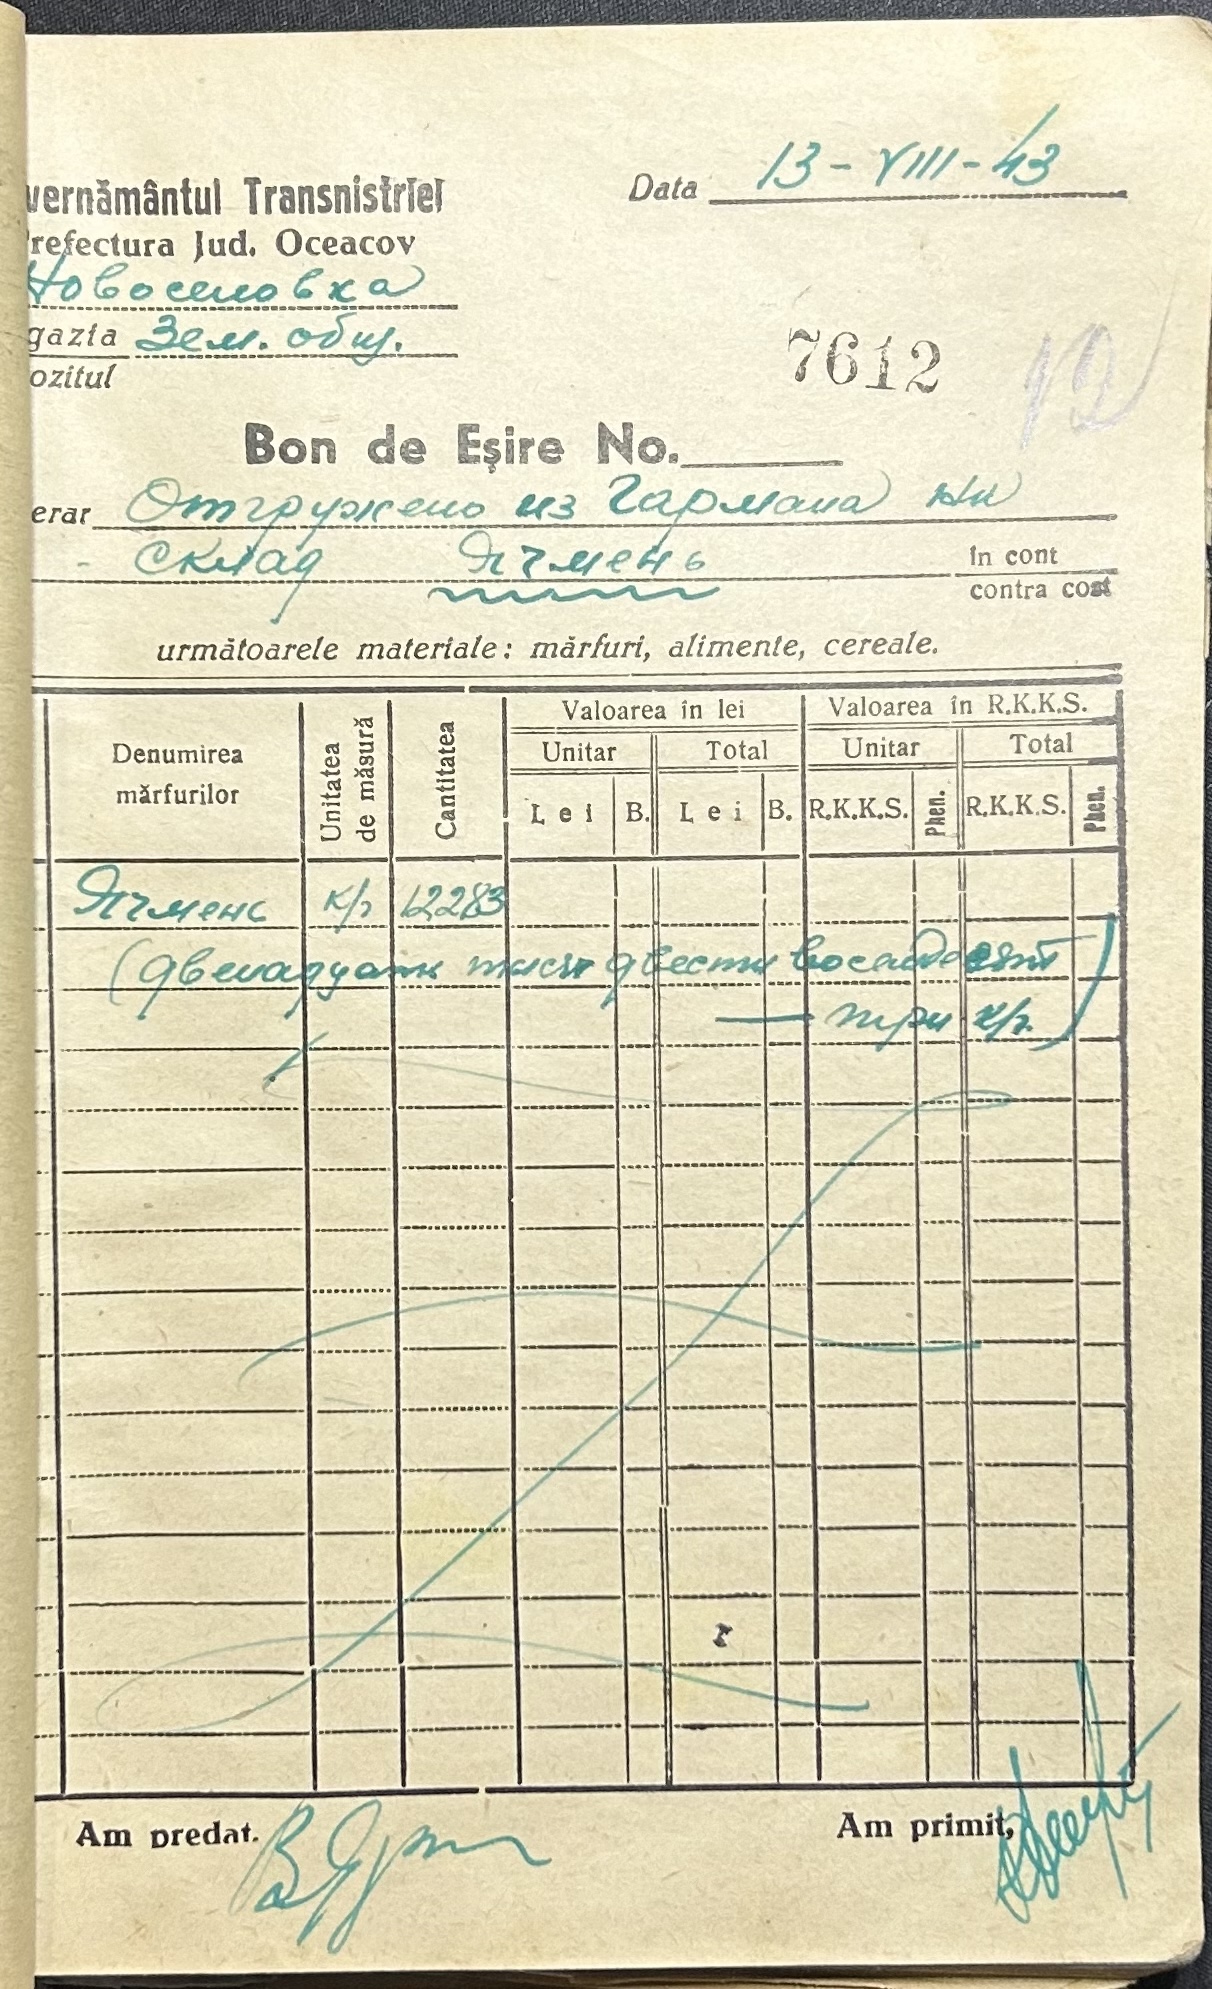 vernământul Transnistriei
Data 13-VIII-43
refectura Jud. Oceacov
Новоселовка
gazia Зем. общ.
ozitul
7612
12
Bon de Eşire No.
erar Отгружено из Гармана на
- склад Ячмень
în cont
contra cost
următoarele materiale: mărfuri, alimente, cereale.
Denumirea mărfurilor
Unitatea de măsură
Cantitatea
Valoarea în lei
Valoarea în R.K.K.S.
Unitar Total Unitar Total
Lei B. Lei B. R.K.K.S. Phen. R.K.K.S. Phen.
Ячмень к/г 12283
(двенадцать тысяч двести восемдесят
— три к/г.)
Am predat.
Am primit,